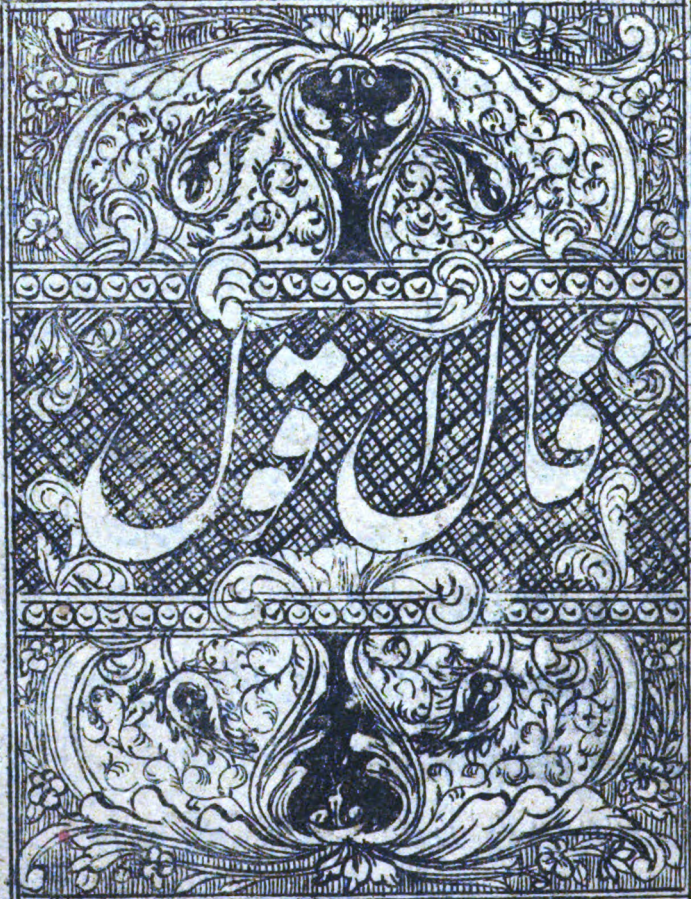 قال اقول